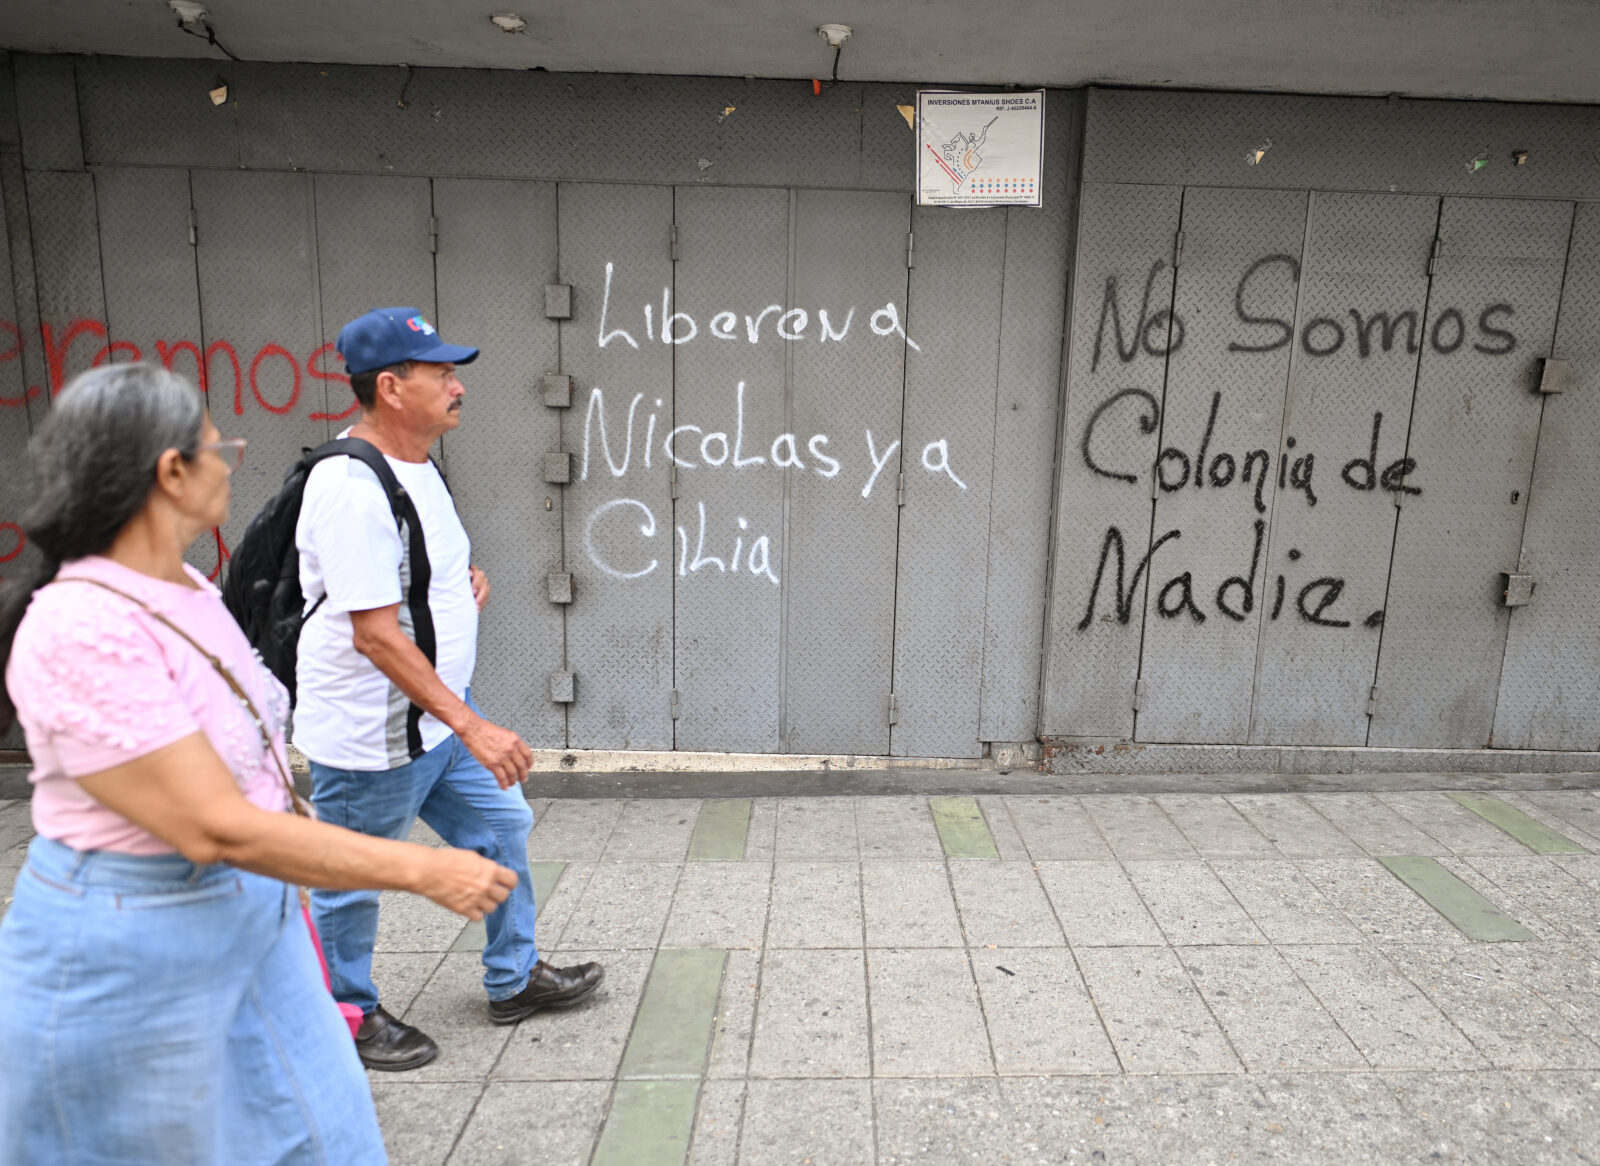 INVERSIONES MTANIUS SHOES C.A
eremos
Liberen a
Nicolas y a
Cilia
No Somos
Colonia de
Nadie.